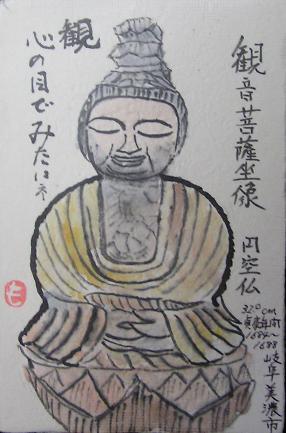 観音菩薩坐像　円空仏
32.0cm
貞享年間
1684〜
1688
岐阜美濃市
観
心の目でみたいネ